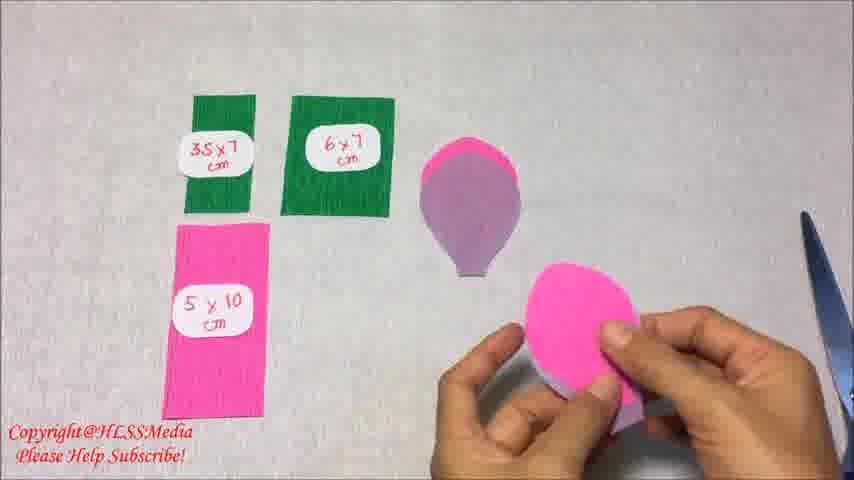 35x7
cm
6x7
cm
5 x 10
cm
Copyright@HLSSMedia
Please Help Subscribe!